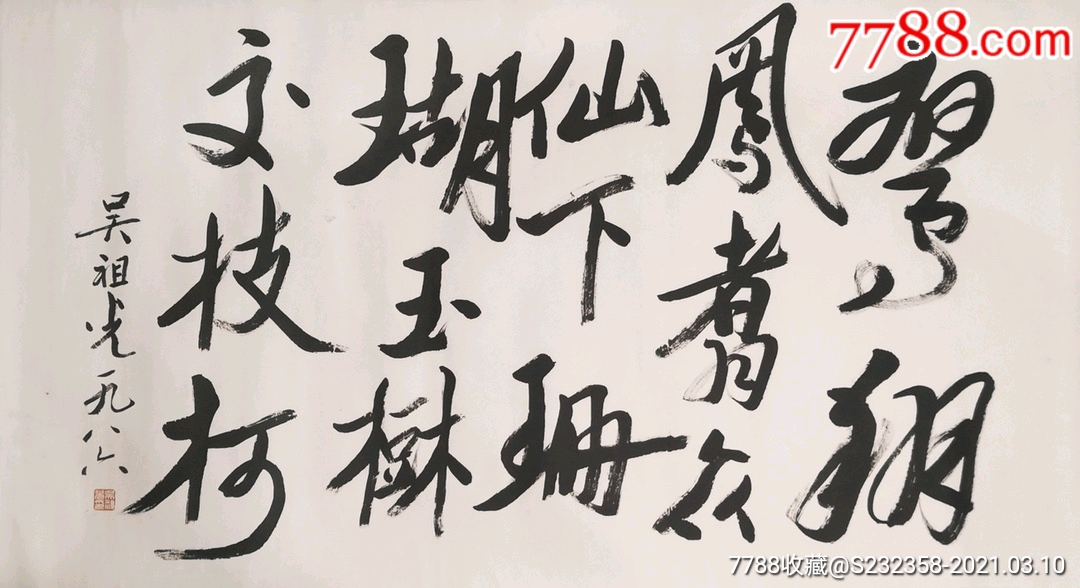 鸞翔
鳳翥众
仙下珊
瑚玉樹
交枝柯
吴祖光一九八六
7788.com
7788收藏@S232358-2021.03.10